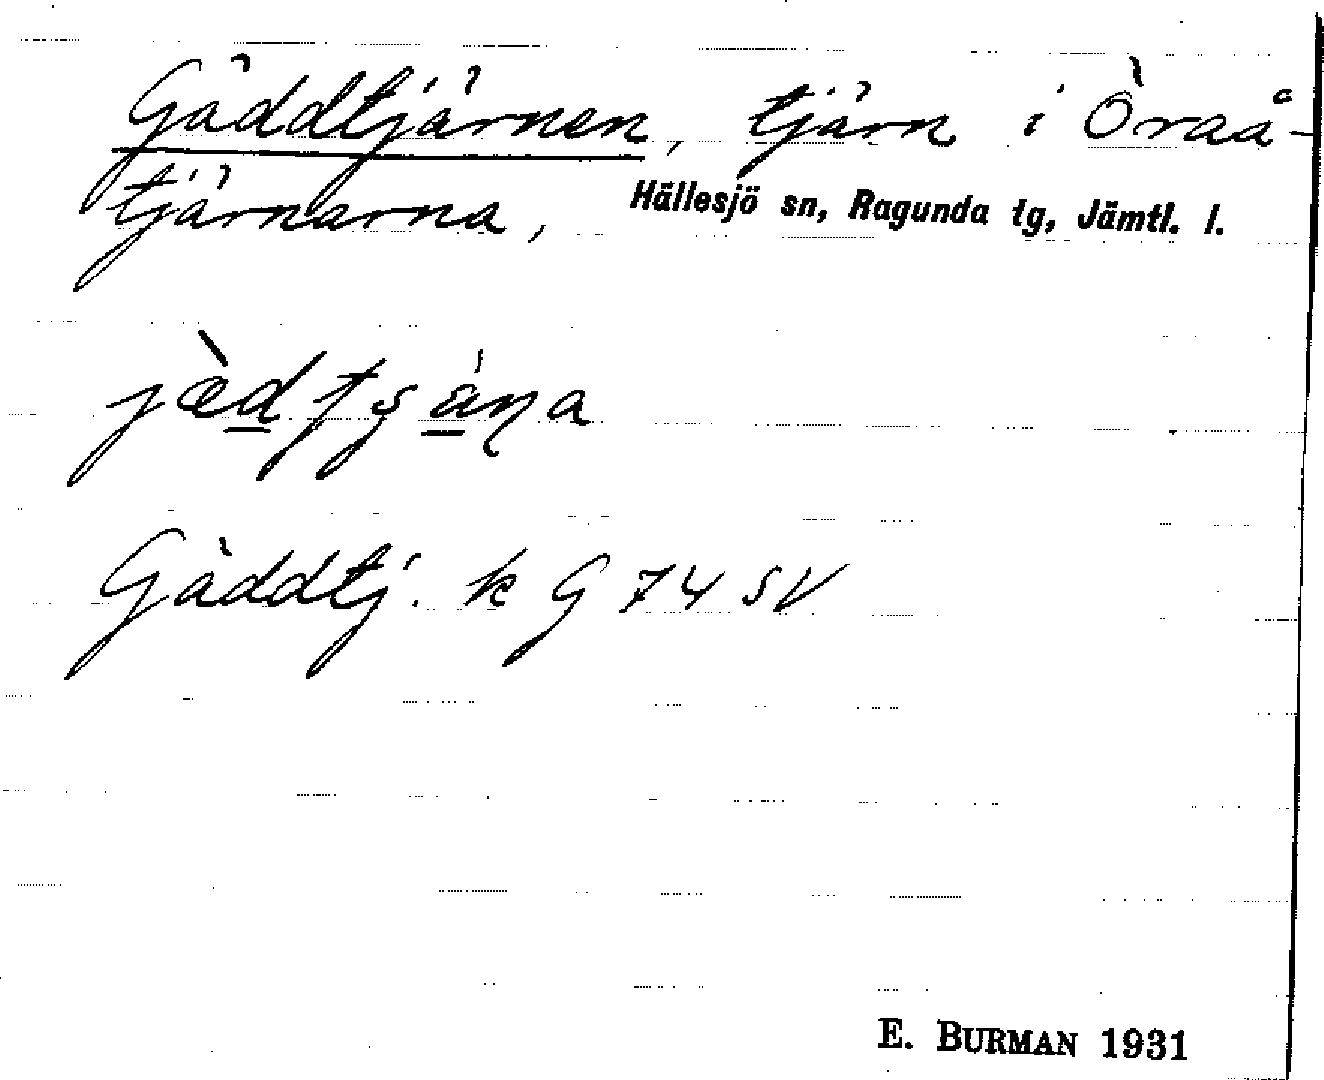 Gäddtjärnen, tjärn i Öraå-
tjärnarna, Hällesjö sn, Ragunda tg, Jämtl. l.
Gäddtj. k G 74 SV
E. BURMAN 1931